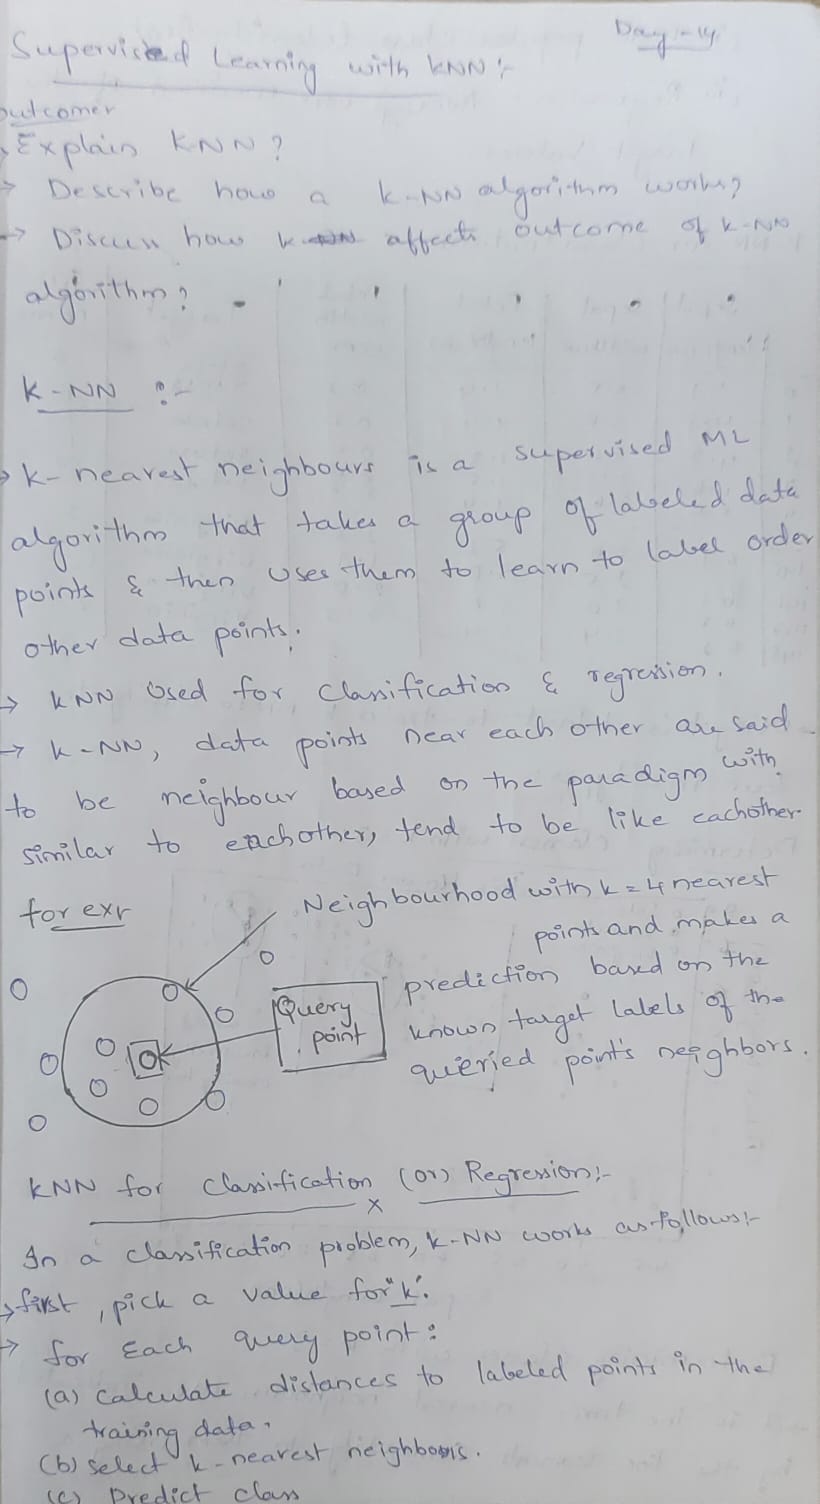 Day-14
Supervised Learning with KNN:-
outcomes
→ Explain K-NN?
→ Describe how a K-NN algorithm works?
→ Discuss how K affects outcome of K-NN
algorithm?
K-NN :-
→ K-nearest neighbours is a supervised ML
algorithm that takes a group of labeled data
points & then uses them to learn to label order
other data points.
→ KNN Used for classification & regression.
→ K-NN, data points near each other are said
to be neighbour based on the paradigm with
similar to eachother, tend to be like eachother.
for ex:
Neighbourhood with k=4 nearest
points and makes a
prediction based on the
known target labels of the
queried point's neighbors.
Query
point
KNN for classification (or) Regression:-
In a classification problem, K-NN works as follows:-
→ first, pick a value for "k".
→ for Each query point:
(a) calculate distances to labeled points in the
training data.
(b) select k-nearest neighbours.
(c) Predict class